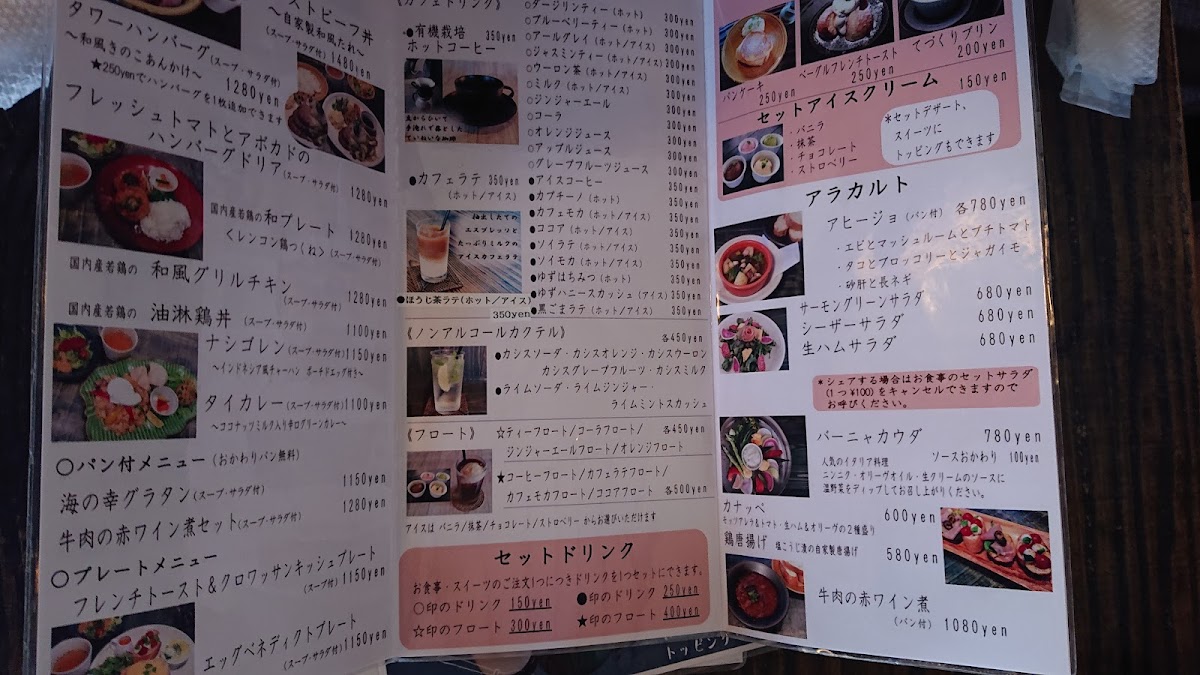 ストビーフ丼
～自家製和風だれ～
(スープ・サラダ付) 1480yen
タワーハンバーグ(スープ・サラダ付)
～和風きのこあんかけ～ 1280yen
★250yenでハンバーグを1枚追加できます
フレッシュトマトとアボカドの
ハンバーグドリア(スープ・サラダ付)
1280yen
国内産若鶏の和プレート 1280yen
くレンコン鶏つくね〉(スープ・サラダ付)
国内産若鶏の 和風グリルチキン
(スープ・サラダ付) 1280yen
国内産若鶏の 油淋鶏丼 (スープ・サラダ付) 1100yen
ナシゴレン(スープ・サラダ付)1150yen
～インドネシア風チャーハン ポーチドエッグ付き～
タイカレー(スープ・サラダ付)1100yen
～ココナッツミルク入り辛口グリーンカレー～
○パン付メニュー(おかわりパン無料)
海の幸グラタン(スープ・サラダ付) 1150yen
牛肉の赤ワイン煮セット(スープ・サラダ付) 1280yen
○プレートメニュー
フレンチトースト&クロワッサンキッシュプレート
(スープ付)1150yen
エッグベネディクトプレート
(スープ・サラダ付)1150yen
《カフェドリンク》
●有機栽培 350yen
ホットコーヒー
豆からひいて
手淹れで落とした
ていねいな珈琲
●カフェラテ 350yen
(ホット/アイス)
抽出したての
エスプレッソと
たっぷりミルクの
アイスカフェラテ
●ほうじ茶ラテ(ホット/アイス)
350yen
○ダージリンティー(ホット) 300yen
○ブルーベリーティー(ホット) 300yen
○アールグレイ(ホット/アイス) 300yen
○ジャスミンティー(ホット/アイス) 300yen
○ウーロン茶(ホット/アイス) 300yen
○ミルク(ホット/アイス) 300yen
○ジンジャーエール 300yen
○コーラ 300yen
○オレンジジュース 300yen
○アップルジュース 300yen
○グレープフルーツジュース 300yen
●アイスコーヒー 350yen
●カプチーノ(ホット) 350yen
●カフェモカ(ホット/アイス) 350yen
●ココア(ホット/アイス) 350yen
●ソイラテ(ホット/アイス) 350yen
●ソイモカ(ホット/アイス) 350yen
●ゆずはちみつ(ホット) 350yen
●ゆずハニースカッシュ(アイス) 350yen
●黒ごまラテ(ホット/アイス) 350yen
《ノンアルコールカクテル》 各450yen
●カシスソーダ・カシスオレンジ・カシスウーロン
カシスグレープフルーツ・カシスミルク
●ライムソーダ・ライムジンジャー・
ライムミントスカッシュ
《フロート》 ☆ティーフロート/コーラフロート/ 各450yen
ジンジャーエールフロート/オレンジフロート
★コーヒーフロート/カフェラテフロート/
カフェモカフロート/ココアフロート 各500yen
アイスは バニラ/抹茶/チョコレート/ストロベリー からお選びいただけます
セットドリンク
お食事・スイーツのご注文1つにつきドリンクを1つセットにできます。
○印のドリンク 150yen ●印のドリンク 250yen
☆印のフロート 300yen ★印のフロート 400yen
パンケーキ 250yen
ベーグルフレンチトースト 250yen
てづくりプリン 200yen
セットアイスクリーム 150yen
・バニラ
・抹茶
・チョコレート
・ストロベリー
*セットデザート、
スイーツに
トッピングもできます
アラカルト
アヒージョ(パン付) 各780yen
・エビとマッシュルームとプチトマト
・タコとブロッコリーとジャガイモ
・砂肝と長ネギ
サーモングリーンサラダ 680yen
シーザーサラダ 680yen
生ハムサラダ 680yen
*シェアする場合はお食事のセットサラダ
(1つ¥100)をキャンセルできますので
お呼びください。
バーニャカウダ 780yen
人気のイタリア料理 ソースおかわり 100yen
ニンニク・オリーヴオイル・生クリームのソースに
温野菜をディップしてお召し上がりください。
カナッペ 600yen
モッツァレラ&トマト・生ハム&オリーヴの2種盛り
鶏唐揚げ 塩こうじ漬の自家製唐揚げ 580yen
牛肉の赤ワイン煮
(パン付) 1080yen
トッピング